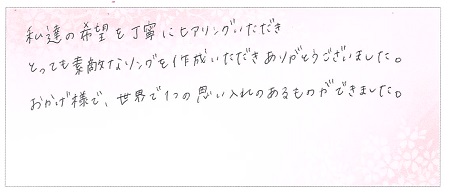 私達の希望を丁寧にヒアリングいただき
とっても素敵なリングを作成いただきありがとうございました。
おかげ様で、世界で1つの思い入れのあるものができました。